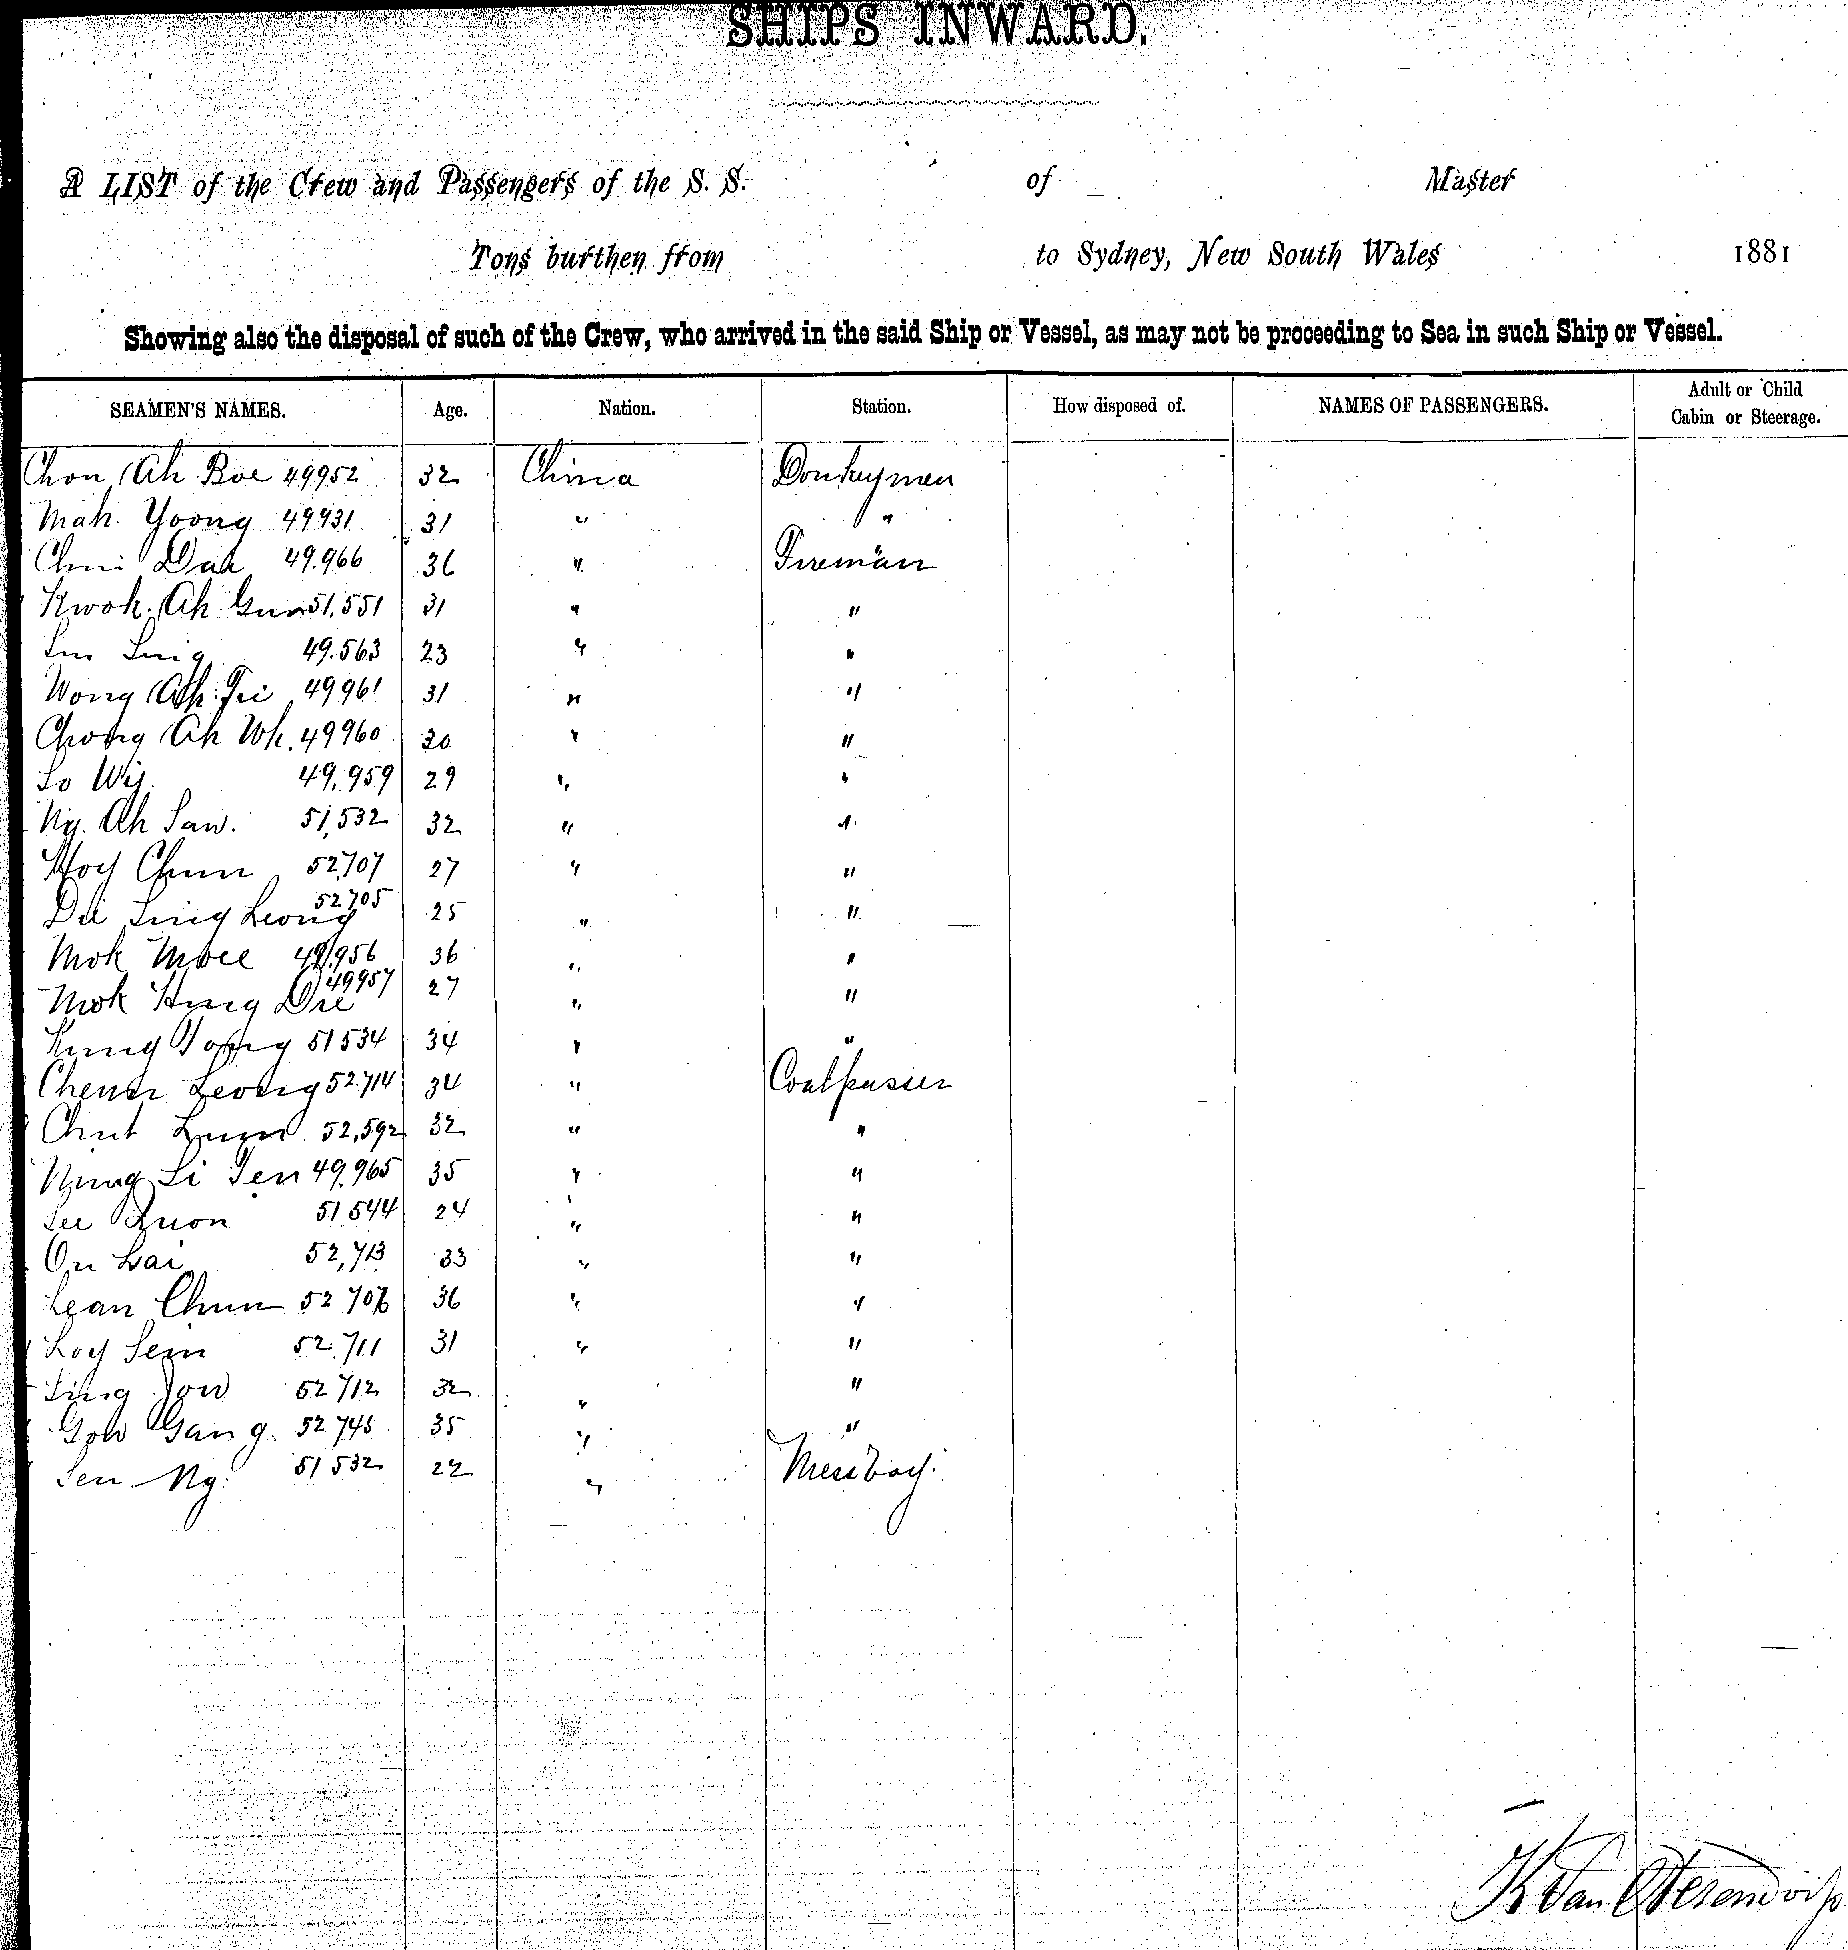 SHIPS INWARD.
A LIST of the Crew and Passengers of the S. S. of Master
Tons burthen from to Sydney, New South Wales 1881
Showing also the disposal of such of the Crew, who arrived in the said Ship or Vessel, as may not be proceeding to Sea in such Ship or Vessel.
SEAMEN'S NAMES. Age. Nation. Station. How disposed of. NAMES OF PASSENGERS. Adult or Child Cabin or Steerage.
Chon Ah Boe 49952 32 China Donkeyman
Mah Yoong 49931 31 " "
Chui Dah 49.966 36 " Fireman
Kwok Ah Gun 51,551 31 " "
49.563 23 " "
Wong Ah 49961 31 " "
Chong Ah Wk. 49960 30 " "
So 49,959 29 " "
Ng. Ah Saw. 51,532 32 " "
Hoy Chun 52707 27 " "
Leong 52705 25 " "
Mok 49,956 36 " "
Mok Hing Die 49957 27 " "
51534 34 " "
Leong 52714 34 " Coalpasser
52,592 32 " "
Li Ten 49,965 35 " "
51544 24 " "
On Lai 52,713 33 " "
Lean Chun 52 36 " "
Loy Sein 52,711 31 " "
52712 32 " "
Gow Gang. 52 745 35 " "
Sen Ng. 51532 22 " Messboy.
K Van